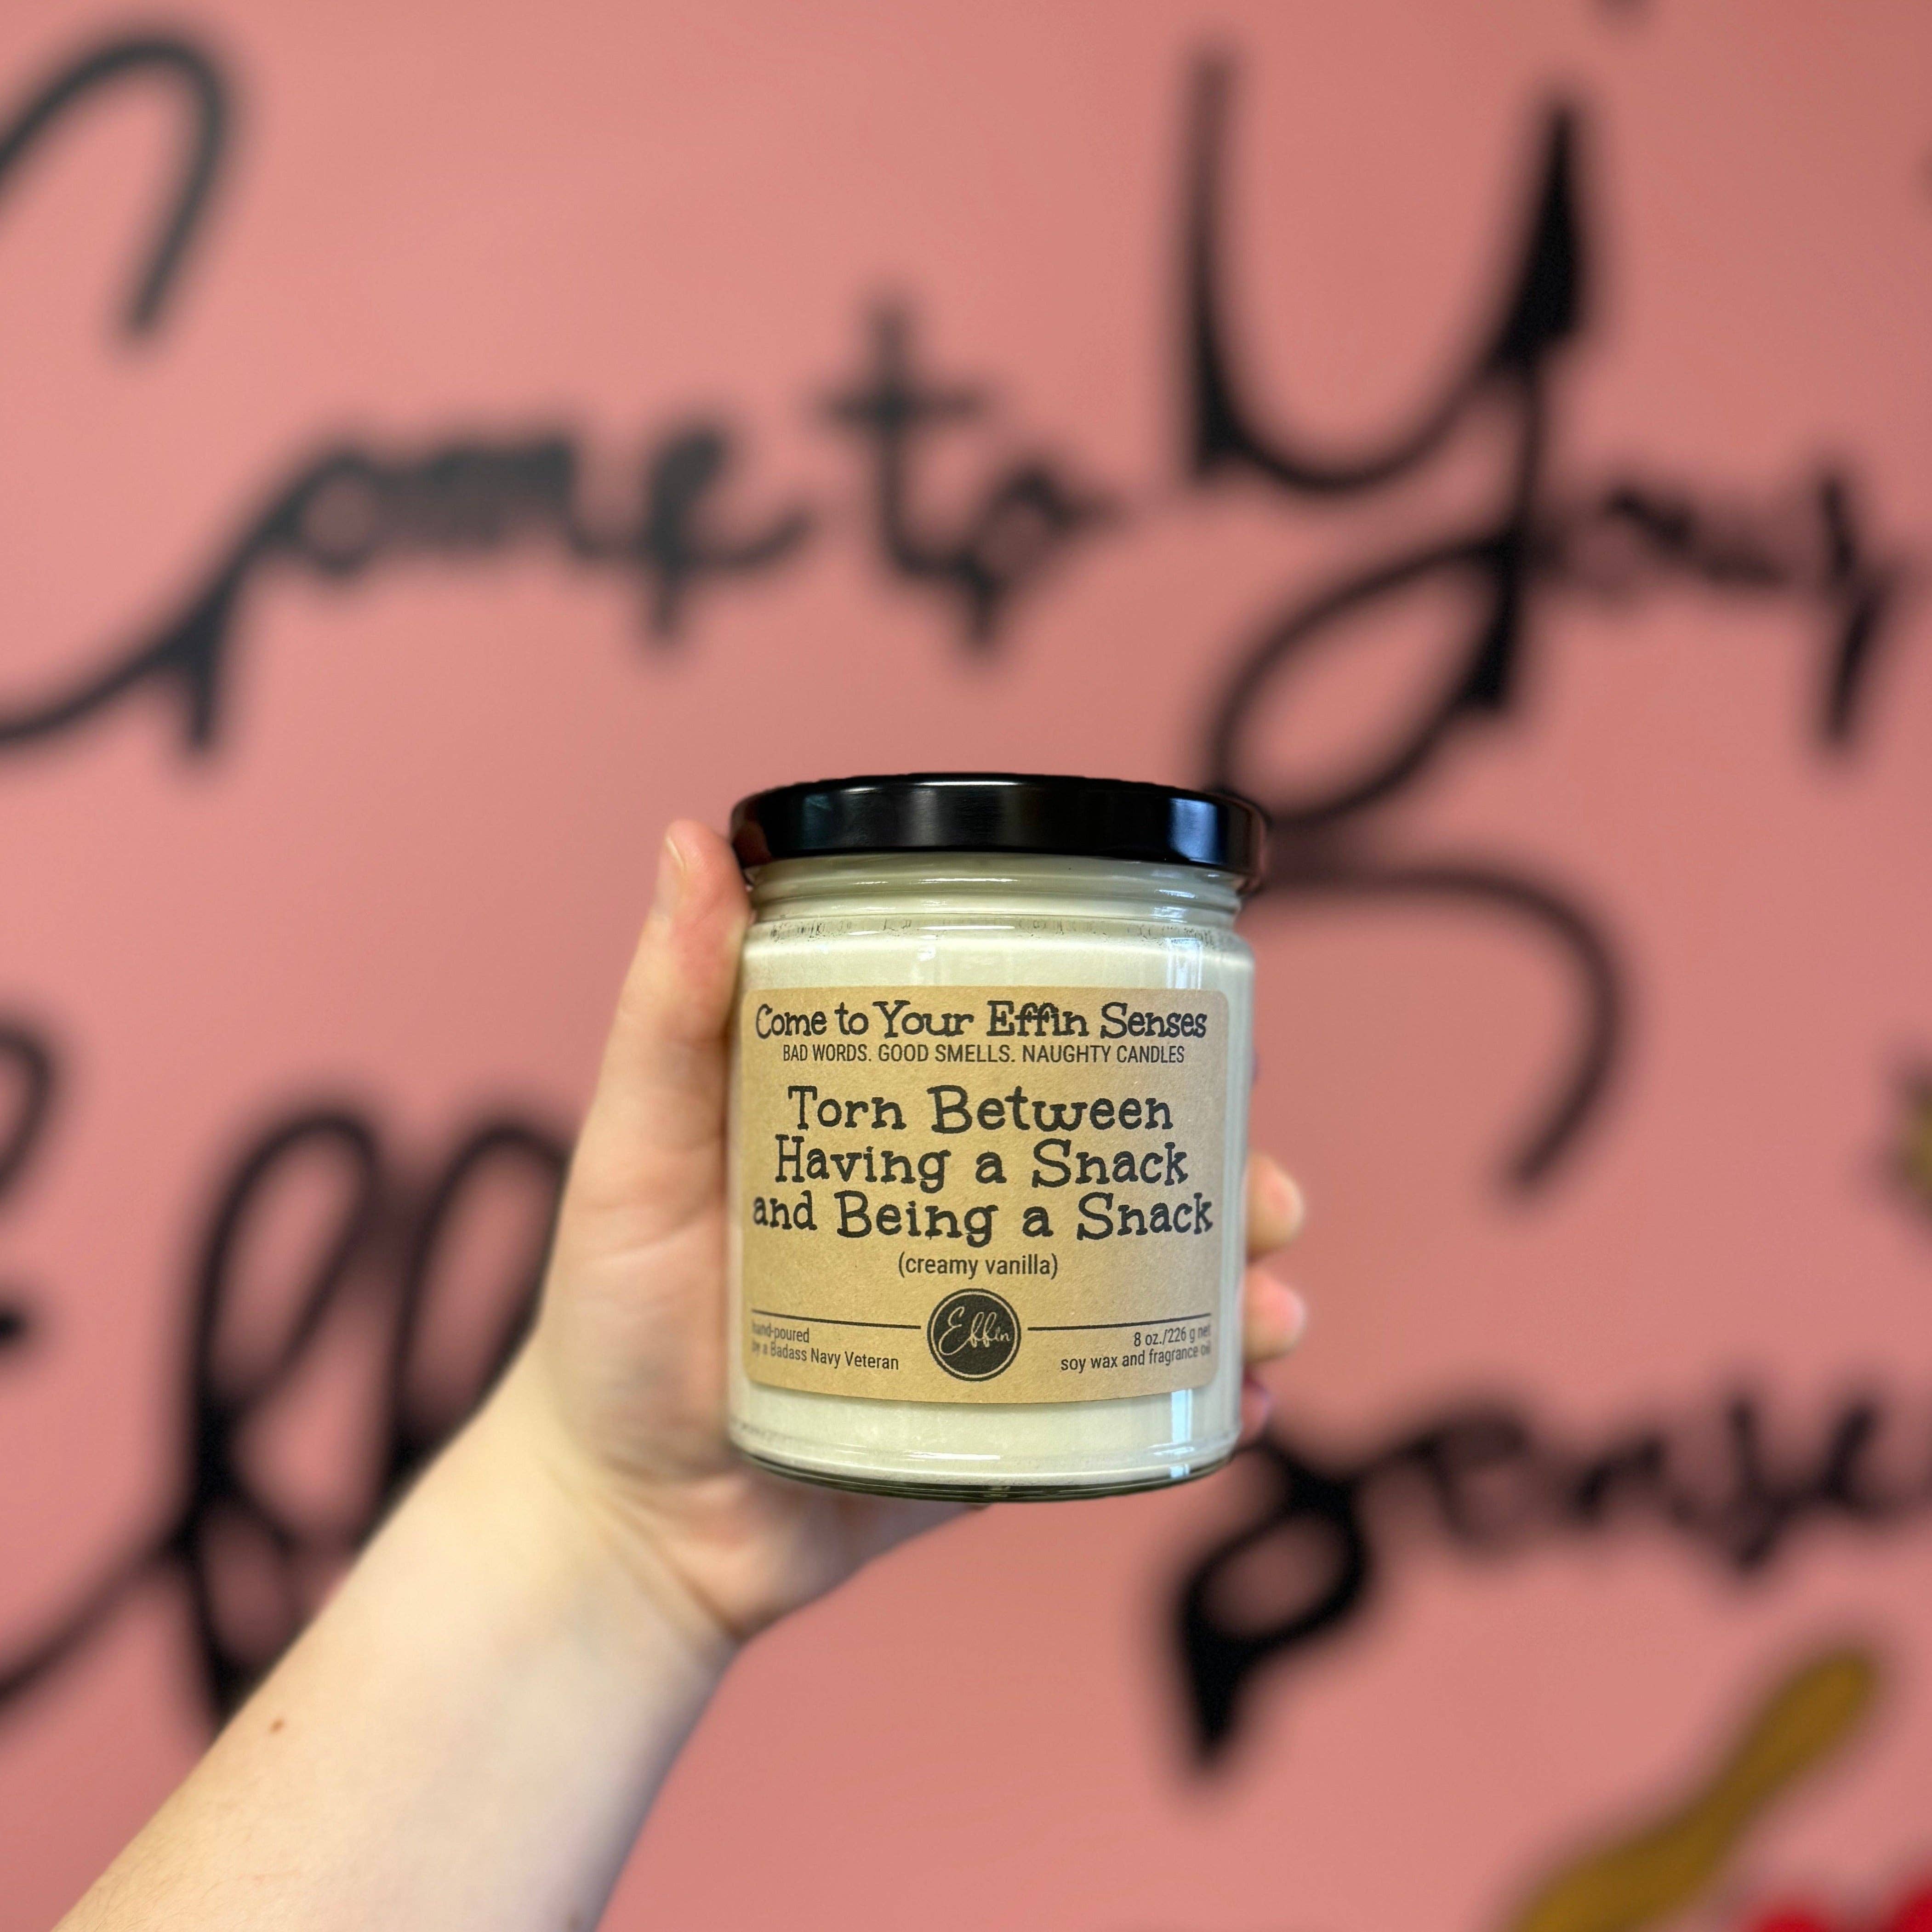 Come to Your
Effin Senses
Come to Your Effin Senses
BAD WORDS. GOOD SMELLS. NAUGHTY CANDLES
Torn Between
Having a Snack
and Being a Snack
(creamy vanilla)
hand-poured
by a Badass Navy Veteran
Effin
8 oz./226 g net
soy wax and fragrance oil